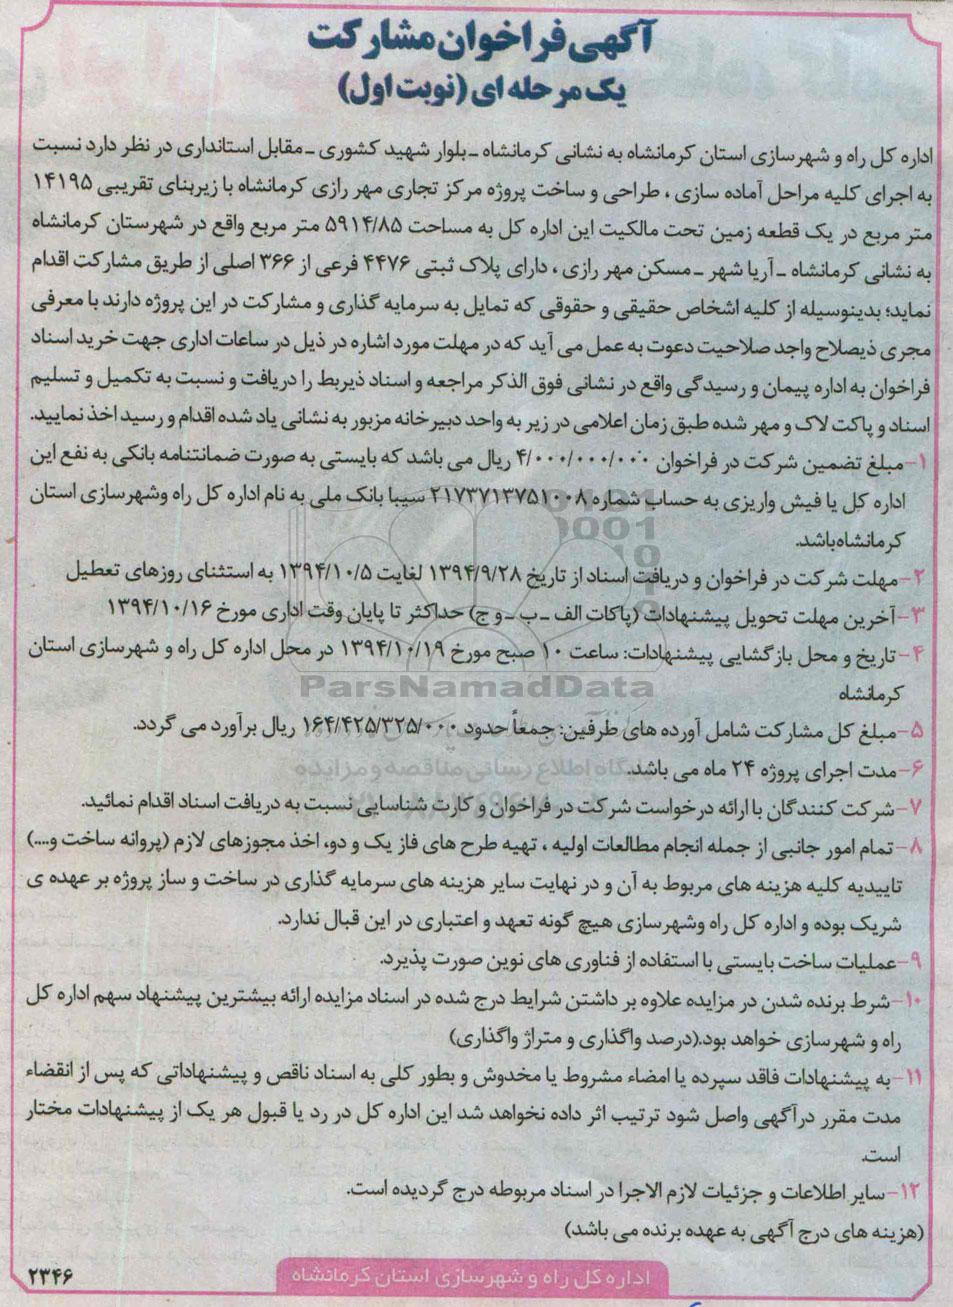 آگهی فراخوان مشارکت
یک مرحله ای (نوبت اول)
اداره کل راه و شهرسازی استان کرمانشاه به نشانی کرمانشاه ـ بلوار شهید کشوری ـ مقابل استانداری در نظر دارد نسبت
به اجرای کلیه مراحل آماده سازی ، طراحی و ساخت پروژه مرکز تجاری مهر رازی کرمانشاه با زیربنای تقریبی ۱۴۱۹۵
متر مربع در یک قطعه زمین تحت مالکیت این اداره کل به مساحت ۵۹۱۴/۸۵ متر مربع واقع در شهرستان کرمانشاه
به نشانی کرمانشاه ـ آریا شهر ـ مسکن مهر رازی ، دارای پلاک ثبتی ۴۴۷۶ فرعی از ۳۶۶ اصلی از طریق مشارکت اقدام
نماید؛ بدینوسیله از کلیه اشخاص حقیقی و حقوقی که تمایل به سرمایه گذاری و مشارکت در این پروژه دارند با معرفی
مجری ذیصلاح واجد صلاحیت دعوت به عمل می آید که در مهلت مورد اشاره در ذیل در ساعات اداری جهت خرید اسناد
فراخوان به اداره پیمان و رسیدگی واقع در نشانی فوق الذکر مراجعه و اسناد ذیربط را دریافت و نسبت به تکمیل و تسلیم
اسناد و پاکت لاک و مهر شده طبق زمان اعلامی در زیر به واحد دبیرخانه مزبور به نشانی یاد شده اقدام و رسید اخذ نمایید.
۱-مبلغ تضمین شرکت در فراخوان ۴/۰۰۰/۰۰۰/۰۰۰ ریال می باشد که بایستی به صورت ضمانتنامه بانکی به نفع این
اداره کل یا فیش واریزی به حساب شماره ۲۱۷۳۷۱۳۷۵۱۰۰۸ سیبا بانک ملی به نام اداره کل راه وشهرسازی استان
کرمانشاه باشد.
۲-مهلت شرکت در فراخوان و دریافت اسناد از تاریخ ۱۳۹۴/۹/۲۸ لغایت ۱۳۹۴/۱۰/۵ به استثنای روزهای تعطیل
۳-آخرین مهلت تحویل پیشنهادات (پاکات الف ـ ب ـ و ج) حداکثر تا پایان وقت اداری مورخ ۱۳۹۴/۱۰/۱۶
۴-تاریخ و محل بازگشایی پیشنهادات: ساعت ۱۰ صبح مورخ ۱۳۹۴/۱۰/۱۹ در محل اداره کل راه و شهرسازی استان
کرمانشاه
ParsNamadData
۵-مبلغ کل مشارکت شامل آورده های طرفین: جمعاً حدود ۱۶۴/۴۲۵/۳۲۵/۰۰۰ ریال برآورد می گردد.
۶-مدت اجرای پروژه ۲۴ ماه می باشد.
پایگاه اطلاع رسانی مناقصه و مزایده
۷-شرکت کنندگان با ارائه درخواست شرکت در فراخوان و کارت شناسایی نسبت به دریافت اسناد اقدام نمائید.
۸-تمام امور جانبی از جمله انجام مطالعات اولیه ، تهیه طرح های فاز یک و دو، اخذ مجوزهای لازم (پروانه ساخت و....)
تاییدیه کلیه هزینه های مربوط به آن و در نهایت سایر هزینه های سرمایه گذاری در ساخت و ساز پروژه بر عهده ی
شریک بوده و اداره کل راه وشهرسازی هیچ گونه تعهد و اعتباری در این قبال ندارد.
۹-عملیات ساخت بایستی با استفاده از فناوری های نوین صورت پذیرد.
۱۰-شرط برنده شدن در مزایده علاوه بر داشتن شرایط درج شده در اسناد مزایده ارائه بیشترین پیشنهاد سهم اداره کل
راه و شهرسازی خواهد بود.(درصد واگذاری و متراژ واگذاری)
۱۱-به پیشنهادات فاقد سپرده یا امضاء مشروط یا مخدوش و بطور کلی به اسناد ناقص و پیشنهاداتی که پس از انقضاء
مدت مقرر درآگهی واصل شود ترتیب اثر داده نخواهد شد این اداره کل در رد یا قبول هر یک از پیشنهادات مختار
است.
۱۲-سایر اطلاعات و جزئیات لازم الاجرا در اسناد مربوطه درج گردیده است.
(هزینه های درج آگهی به عهده برنده می باشد)
اداره کل راه و شهرسازی استان کرمانشاه
۲۳۴۶